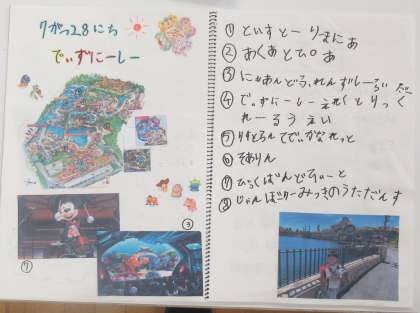 7がつ28にち
でぃずにーしー
① といすとーりまにあ
② あくあとぴあ
③ にもあんどふれんずしーらいだー
④ でぃずにーしーえれくとりっく
れーるうぇい
⑤ りすとらんてでぃかなれっと
⑥ そありん
⑦ びっくばんどびーと
⑧ じゃんぼりーみっきのうただんす
⑦
③